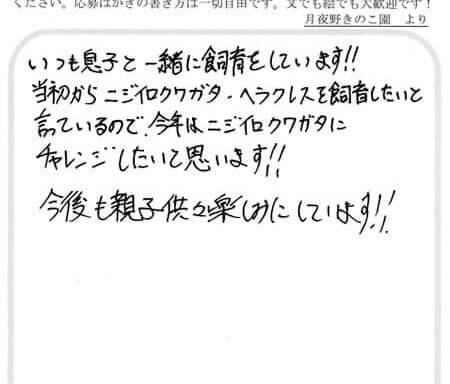 ください。応募はがきの書き方は一切自由です。文でも絵でも大歓迎です！
月夜野きのこ園　より
いつも息子と一緒に飼育をしています!!
当初からニジイロクワガタ・ヘラクレスを飼育したいと
言ているので、今年はニジイロクワガタに
チャレンジしたいと思います!!
今後も親子供々楽しみにしています!!